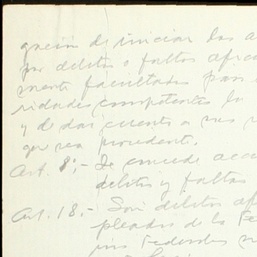 gación de iniciar las a
por delitos o faltas
mente facultados para
ridades competentes lo
y de dar cuenta a sus
que sea procedente.
Art. 8.- Se concede acc
delitos y faltas
Art. 18.- Son delitos
pleados de la Fe